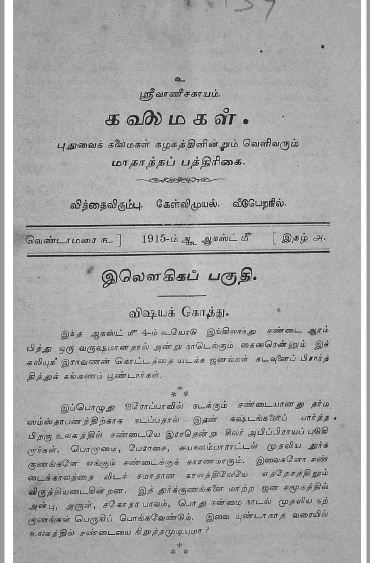 உ
ஸ்ரீவாணீசகாயம்.
கலைமகள்.
புதுவைக் கலைமகள் கழகத்தினின்றும் வெளிவரும்
மாதாந்தப் பத்திரிகை.
வித்தைவிரும்பு. கேள்விமுயல். வீடுபேறுநில்.
வெண்டாமரை ௬ ] 1915-ம் ௵ ஆகஸ்ட் ௴ [ இதழ் ௮.
இலௌகிகப் பகுதி.
விஷயக் கொத்து.
இந்த ஆகஸ்ட் ௴ 4-ம் உயோடு இங்கிலாந்து சண்டை ஆரம்
பித்து ஒரு வருஷமானதால் அன்று நாடெங்கும்
கலியுக இராவணன் கொட்டத்தை யடக்க ஜனங்கள் கடவுளைப் பிரார்த்
தித்துக் கங்கணம் பூண்டார்கள்.
***
இப்பொழுது ஐரோப்பாவில் நடக்கும் சண்டையானது தர்ம
ஸம்ஸ்தாபனத்திற்காக நடப்பதால் இதன் கஷ்டங்களைப் பார்த்த
பிறகு உலகத்தில் சண்டையே இராதென்று சிலர் அபிப்பிராயப் படுகி
றார்கள். பொறாமை, பேராசை, சுயலம்பாராட்டல் முதலிய துர்க்
குணங்களே எங்கும் சண்டைக்குக் காரணமாகும். இவைகளோ சண்
டைக்காலத்தை விடச் சமாதான காலத்திலேயே எத்தேசத்திலும்
விருத்தியடைகின்றன. இத் துர்க்குணங்களை மாற்ற ஜன சமூகத்தில்
அன்பு, அருள், சகோதர பாவம், பொது நன்மை நாடல் முதலிய நற்
குணங்கள் பெருகிப் பொங்கவேண்டும். இவை யுண்டாகாத வரையில்
உலகத்தில் சண்டையை நிறுத்தமுடியுமா?
***